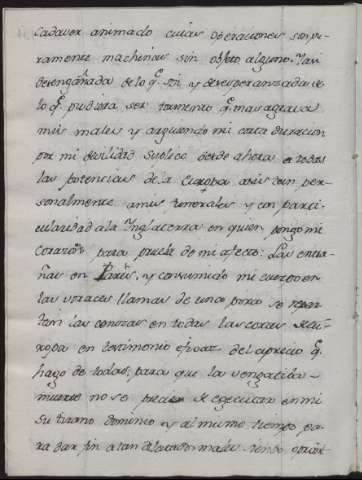 Cadaver animado cuias operaciones son pu-
ramente machinas sin objeto alguno. Tan
desengañada de lo q.e soi y desesperanzada de
lo q.e pudiera ser tormento q.e mas agrava
mis males y arguiendo mi corta duracion
por mi devilidad suplico desde ahora a todas
las potencias de la Europa asistan per-
sonalmente a mis funerales y con parti-
cularidad a la Inglaterra en quien pongo mi
corazon para prueba de mi afecto: Las entra-
ñas en Paris, y consumido mi cuerpo en
las voraces llamas de una pira se repar-
tan las cenizas en todas las cortes de Eu-
ropa en testimonio eficaz del aprecio q.e
hago de todas; para que la vengativa
muerte no se precie de egecutar en mi
su tirano dominio y al mismo tiempo pa-
ra dar fin a tan dilatados males siendo